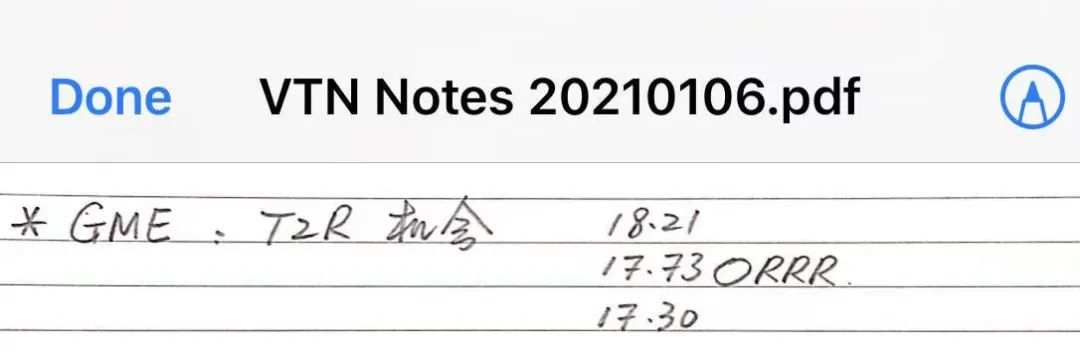 Done VTN Notes 20210106.pdf
* GME : T2R 机会 18.21
17.73 ORRR.
17.30